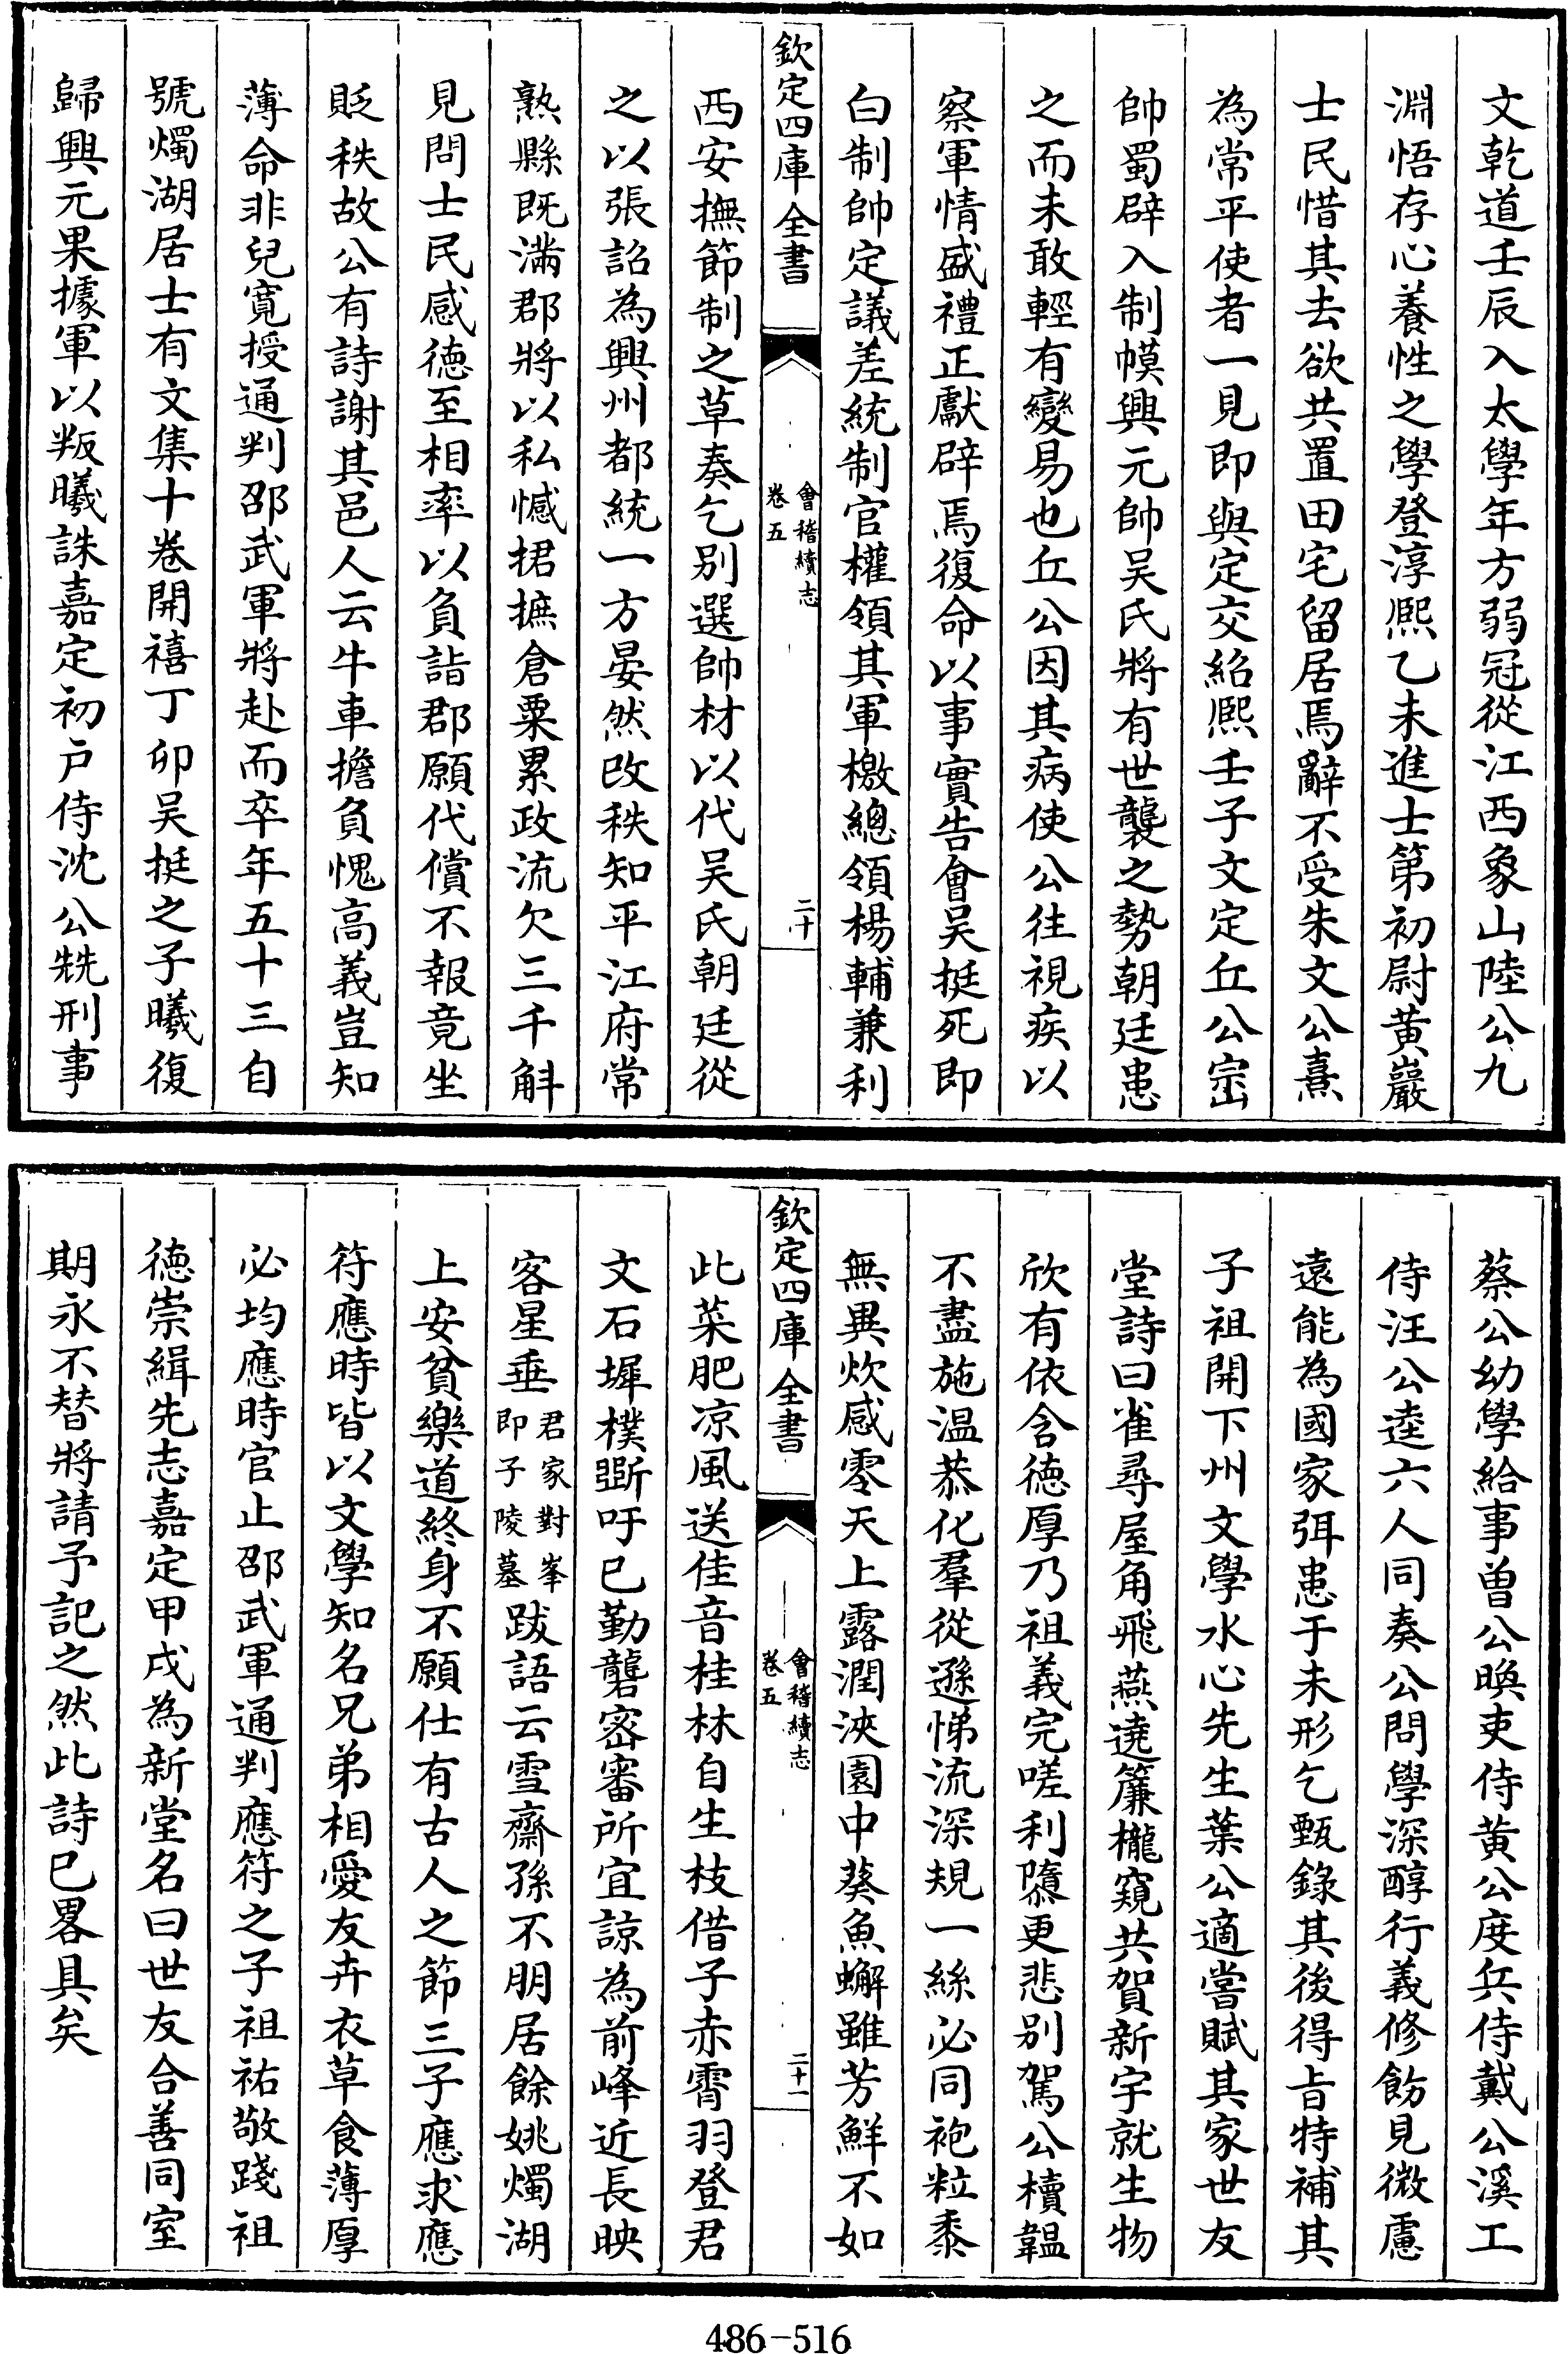 文乾道壬辰入太學年方弱冠從江西象山陸公九
淵悟存心養性之學登淳熙乙未進士第初尉黄巖
士民惜其去欲共置田宅留居焉辭不受朱文公熹
為常平使者一見即與定交紹熙壬子文定丘公崈
帥蜀辟入制幙興元帥吴氏將有世襲之勢朝廷患
之而未敢輕有變易也丘公因其病使公往視疾以
察軍情盛禮正獻辟焉復命以事實告會吴挺死即
白制帥定議差統制官權領其軍檄總領楊輔兼利
欽定四庫全書
會稽續志
卷五
二十
西安撫節制之草奏乞别選帥材以代吴氏朝廷從
之以張詔為興州都統一方晏然改秩知平江府常
熟縣既滿郡將以私憾捃摭倉粟累政流欠三千斛
見問士民感德至相率以負詣郡願代償不報竟坐
貶秩故公有詩謝其邑人云牛車擔負愧高義豈知
薄命非兒寛授通判邵武軍將赴而卒年五十三自
號燭湖居士有文集十卷開禧丁卯吴挺之子曦復
歸興元果據軍以叛曦誅嘉定初户侍沈公兟刑事
蔡公幼學給事曽公㬇吏侍黄公度兵侍戴公溪工
侍汪公逵六人同奏公問學深醇行義修飭見微慮
遠能為國家弭患于未形乞甄錄其後得旨特補其
子祖開下州文學水心先生葉公適嘗賦其家世友
堂詩曰雀尋屋角飛燕遶簾櫳窺共賀新宇就生物
欣有依含德厚乃祖義完嗟利隳更悲别駕公櫝韞
不盡施温恭化羣從遜悌流深規一絲必同袍粒黍
無異炊感零天上露潤浹園中葵魚蠏雖芳鮮不如
欽定四庫全書
會稽續志
卷五
二十一
此菜肥凉風送佳音桂林自生枝借子赤霄羽登君
文石墀樸斵吁已勤礱宻審所宜諒為前峰近長映
客星垂君家對峯即子陵墓跋語云雪齋孫不朋居餘姚燭湖
上安貧樂道終身不願仕有古人之節三子應求應
符應時皆以文學知名兄弟相愛友卉衣草食薄厚
必均應時官止邵武軍通判應符之子祖祐敬踐祖
德崇緝先志嘉定甲戌為新堂名曰世友合善同室
期永不替將請予記之然此詩已畧具矣
486-516